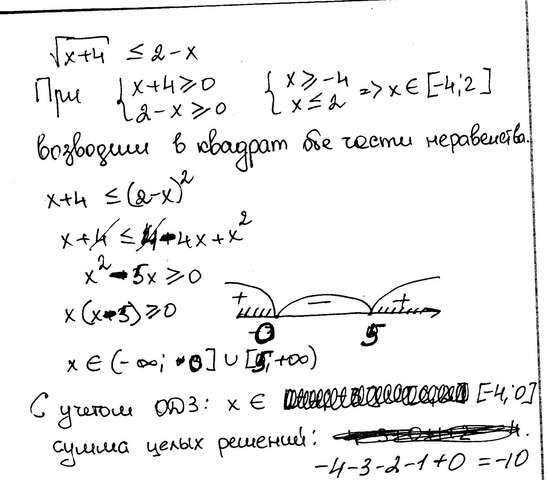 √x+4 ≤ 2-x
При { x+4 ≥ 0 { x ≥ -4 => x ∈ [-4; 2]
2-x ≥ 0 x ≤ 2
возводим в квадрат обе части неравенства.
x+4 ≤ (2-x)²
x+4 ≤ 4-4x+x²
x²-5x ≥ 0
x(x-5) ≥ 0
+ - +
0 5
x ∈ (-∞; 0] ∪ [5; +∞)
С учетом ОДЗ: x ∈ [-4; 0]
сумма целых решений:
-4-3-2-1+0 = -10